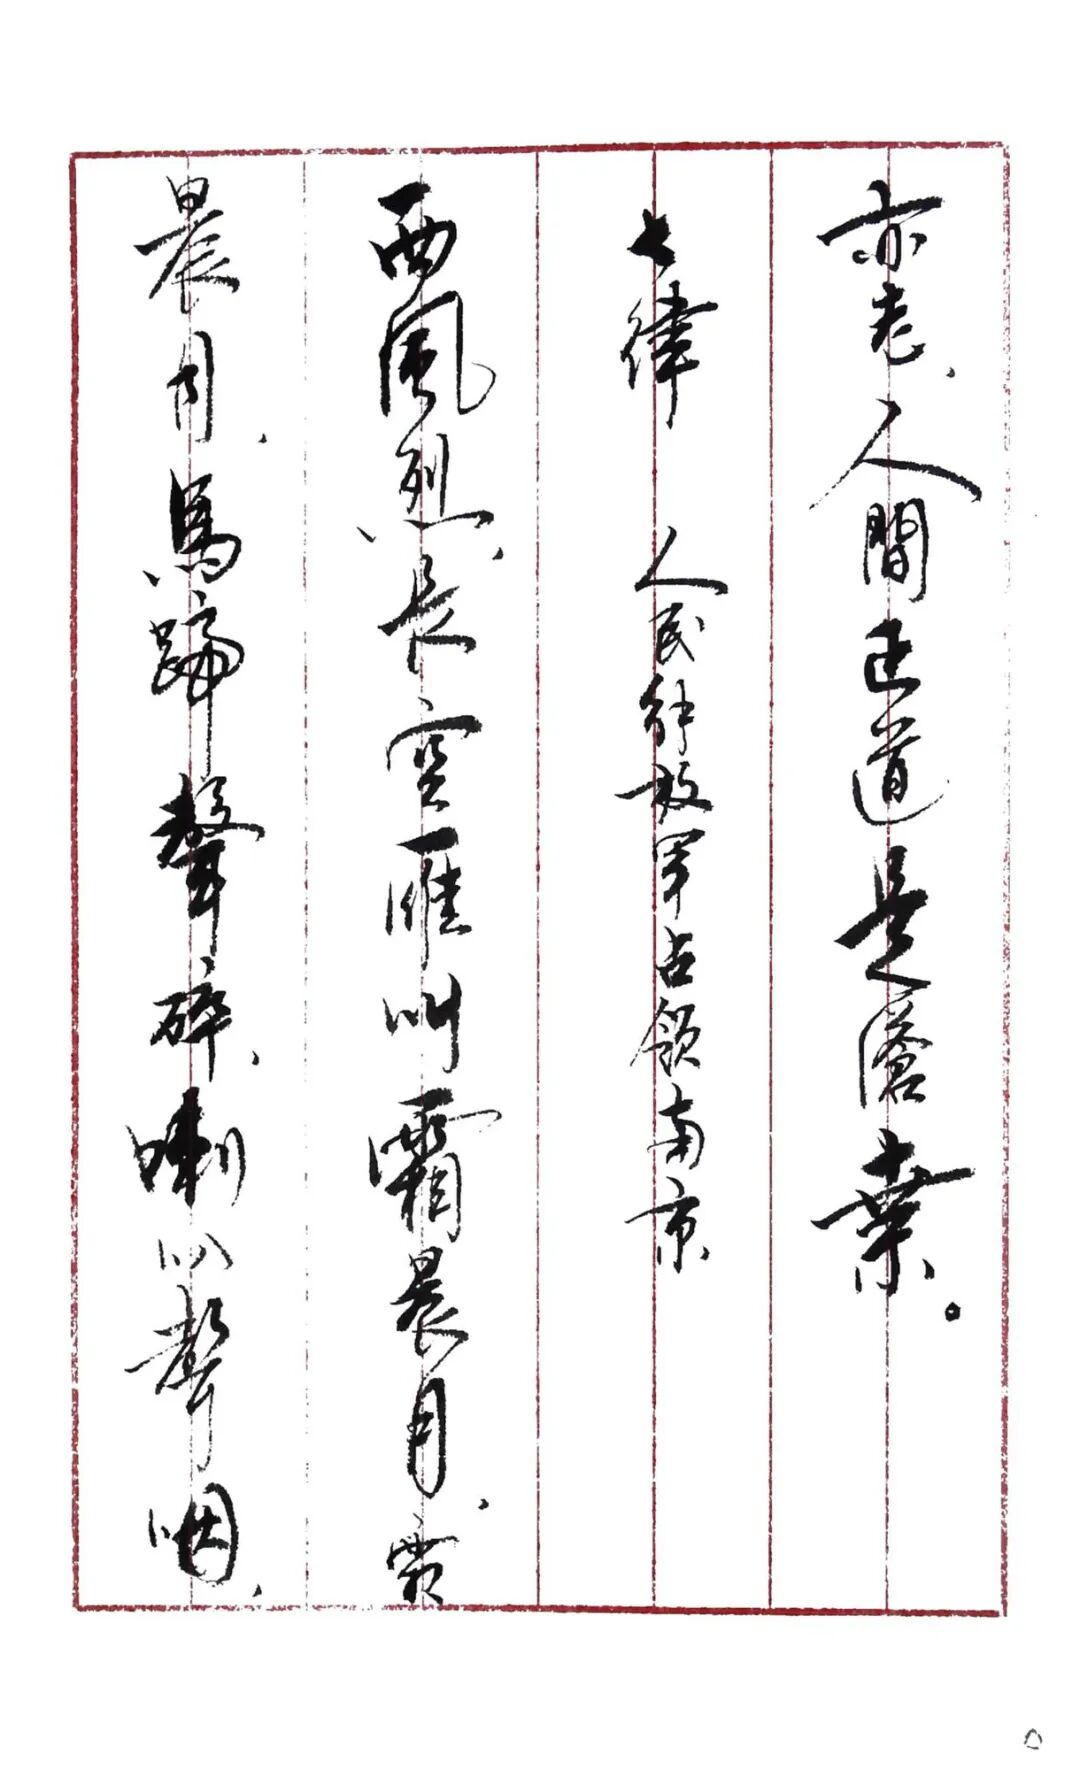 亦老、人間正道是滄桑。
七律 人民解放军占领南京
西風烈、長空雁叫霜晨月、霜
晨月、馬蹄聲碎、喇叭聲咽、